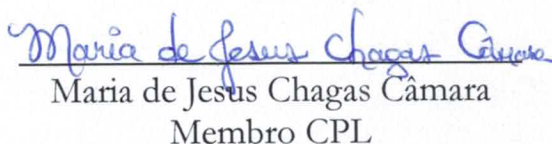 Maria de Jesus Chagas Câmara
Maria de Jesus Chagas Câmara
Membro CPL